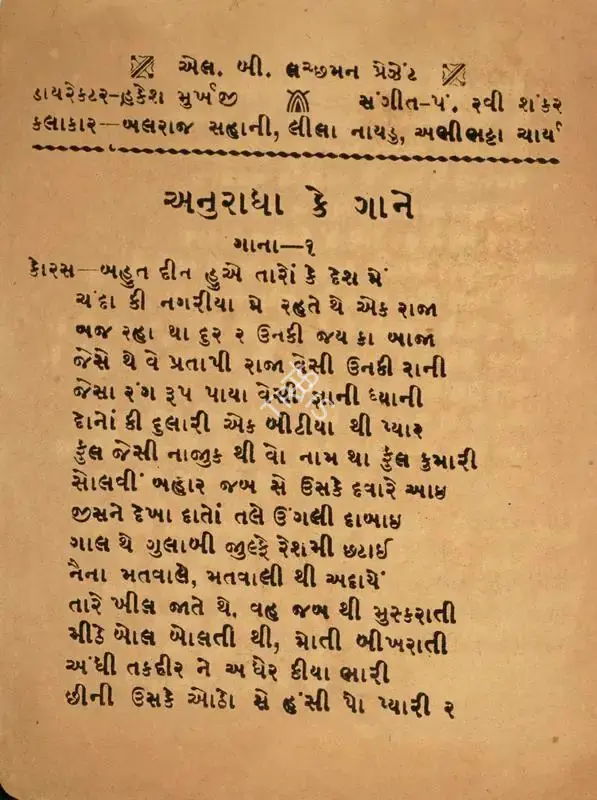 એલ. બી. લચ્છમન પ્રેઝેંટ
ડાયરેકટર-હકેશ મુર્ખજી સંગીત-પં. રવી શંકર
કલાકાર—બલરાજ સહાની, લીલા નાયડુ, અભીભટ્ટા ચાર્ય
અનુરાધા કે ગાને
ગાના—૧
કોરસ—બહુત દીન હુએ તારોં કે દેશ મેં
ચંદા કી નગરીયા મે રહતે થે એક રાજા
બજ રહા થા દુર ૨ ઉનકી જય કા બાજા
જેસે થે વે પ્રતાપી રાજા વેસી ઉનકી રાની
જેસા રંગ રૂપ પાયા વેસી જ્ઞાની ધ્યાની
દોનોં કી દુલારી એક બીટીયા થી પ્યારી
ફુંલ જેસી નાજીક થી વો નામ થા ફુંલ કુમારી
સોલવીં બહાર જબ સે ઉસકે દવારે આઇ
જીસને દેખા દાતોં તલે ઉંગલી દાબાઇ
ગાલ થે ગુલાબી જીલ્ફે રેશમી છટાઈ
નૈના મતવાલે, મતવાલી થી અદાયેં
તારે ખીલ જાતે થે, વહ જબ થી મુસ્કરાતી
મીઠે બોલ બોલતી થી, મોતી બીખરાતી
અંધી તકદીર ને અંધેર કીયા ભારી
છીની ઉસકે ઓઠો સે હંસી પો પ્યારી ૨